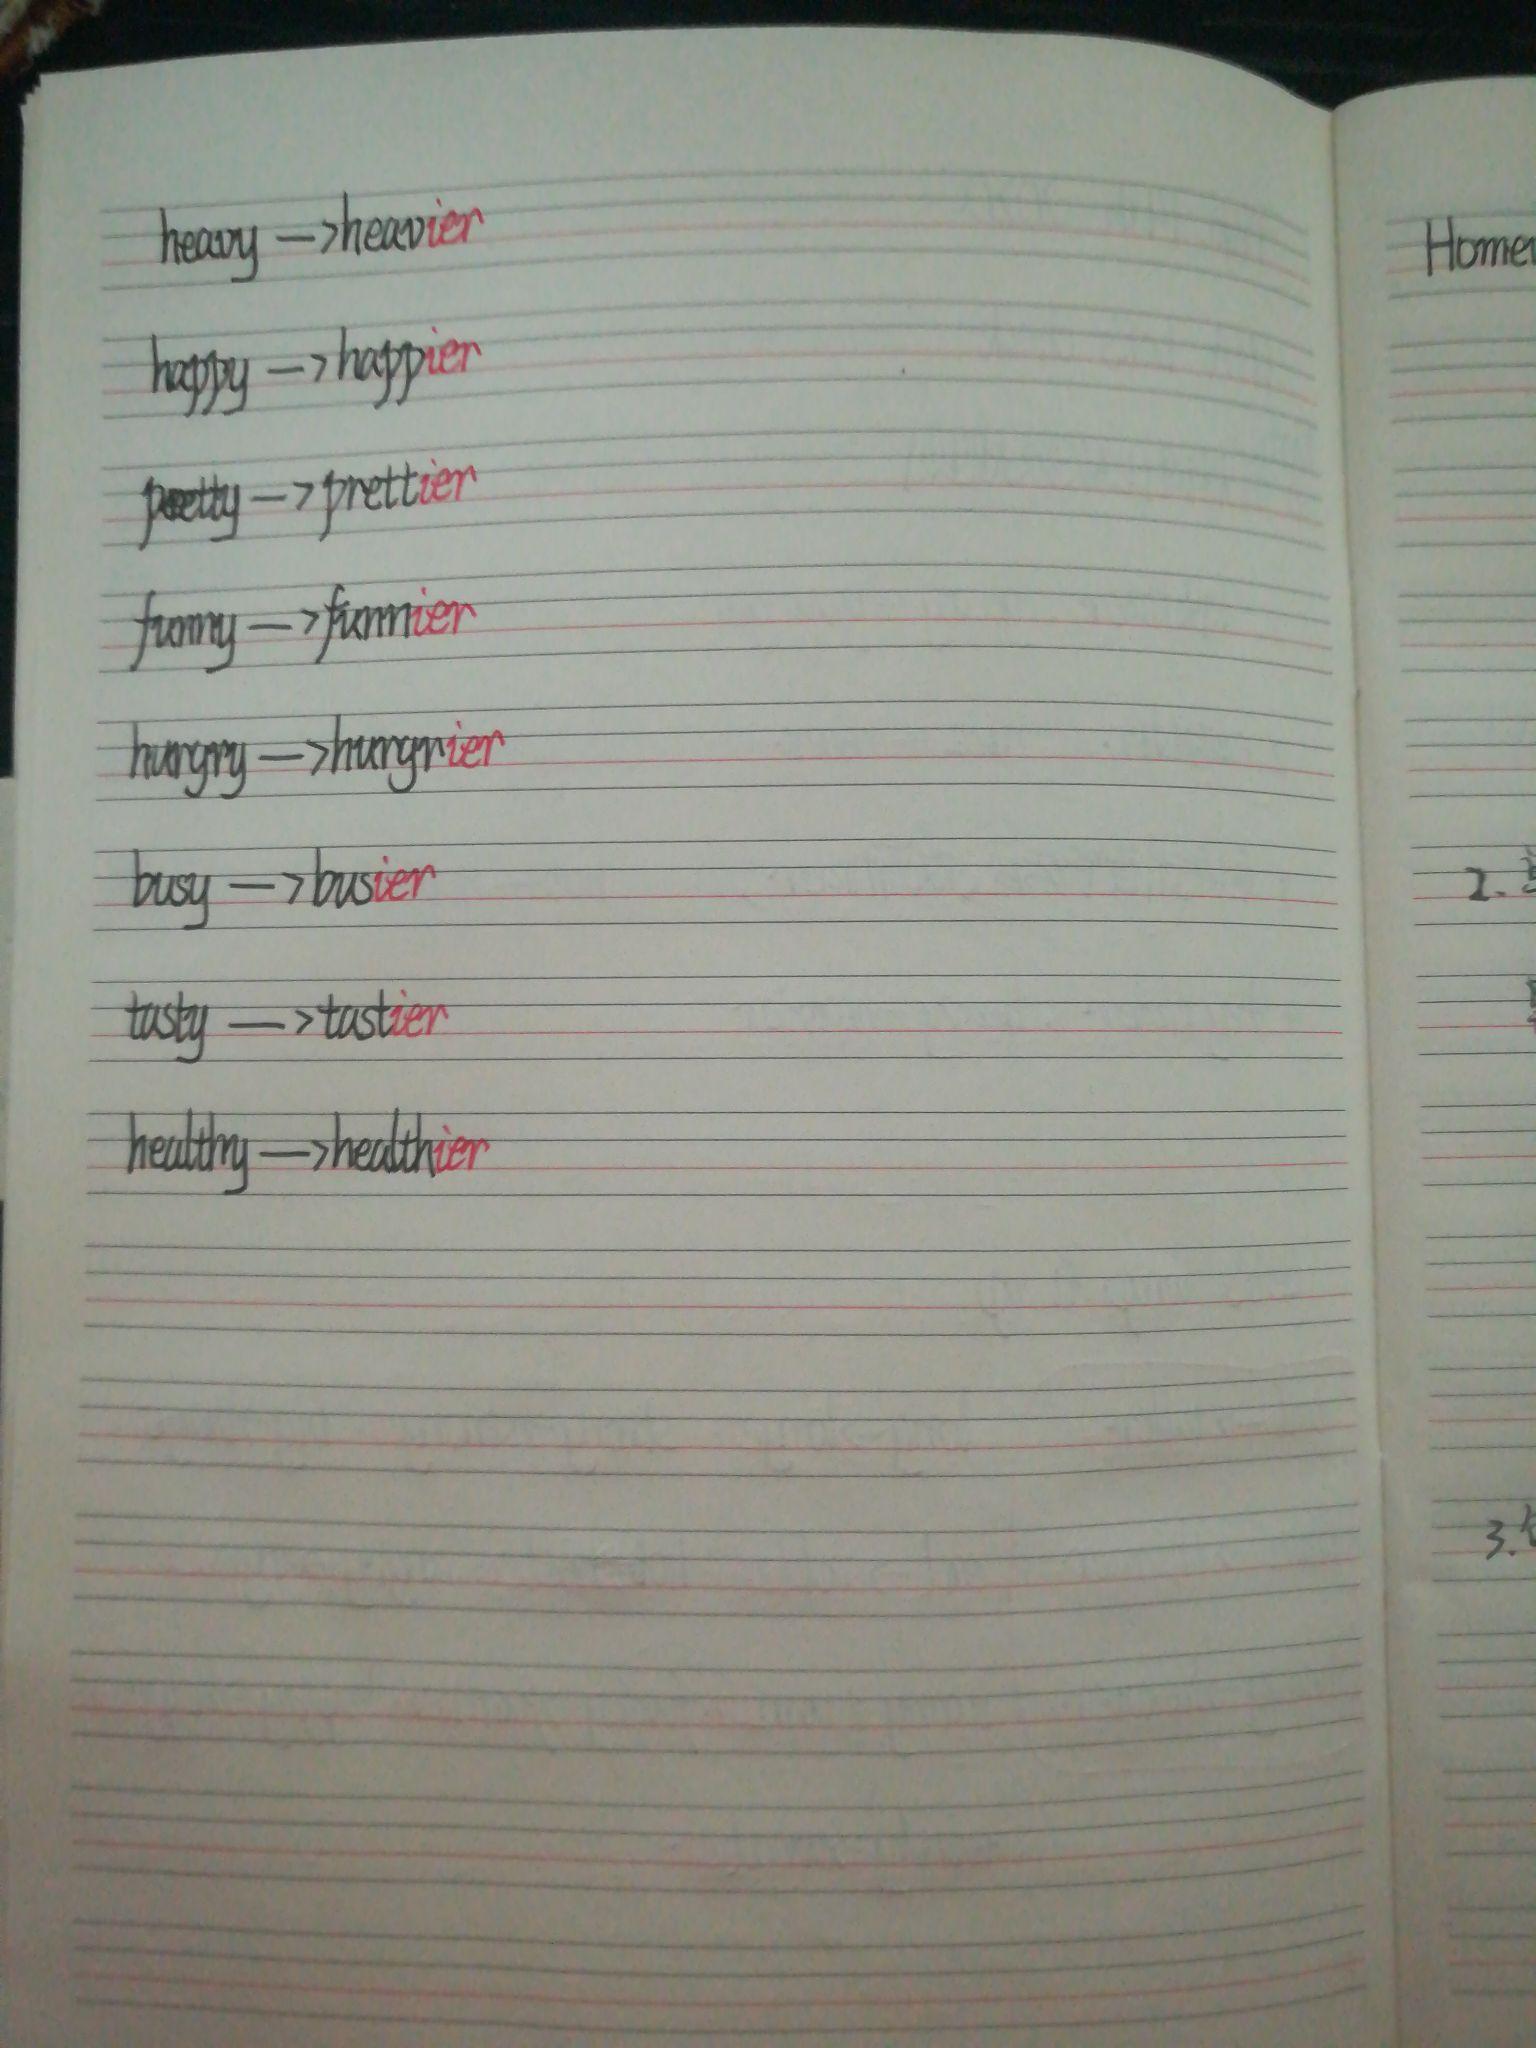 heavy —> heavier
happy —> happier
pretty —> prettier
funny —> funnier
hungry —> hungrier
busy —> busier
tasty —> tastier
healthy —> healthier
2.
3.